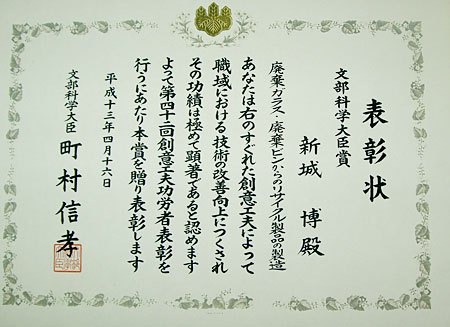 表彰状
文部科学大臣賞
新城 博殿
廃棄ガラス・廃棄ビンからのリサイクル製品の製造
あなたは右のすぐれた創意工夫によって
職域における技術の改善向上につくされ
その功績は極めて顕著であると認めます
よって第四十二回創意工夫功労者表彰を
行うにあたり本賞を贈り表彰します
平成十三年四月十六日
文部科学大臣 町村信孝